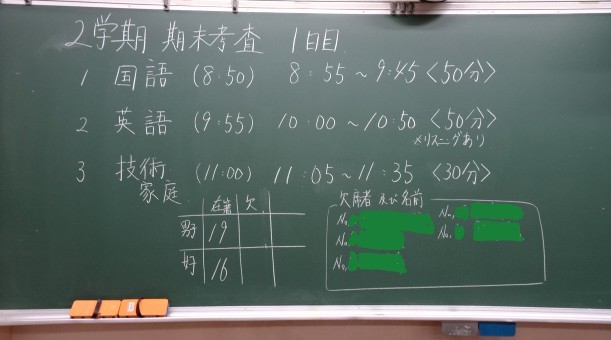 2学期 期末考査 1日目
1 国語 (8:50) 8:55~9:45 <50分>
2 英語 (9:55) 10:00~10:50 <50分>
※リスニングあり
3 技術 家庭 (11:00) 11:05~11:35 <30分>
在籍 欠
男子 19
女子 16
欠席者 及び名前
No. No.
No. No.
No.